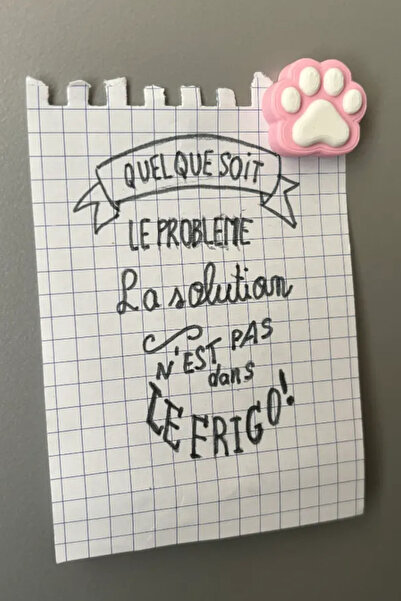 QUEL QUE SOIT
LE PROBLEME
La solution
N'EST PAS
dans
LE FRIGO!